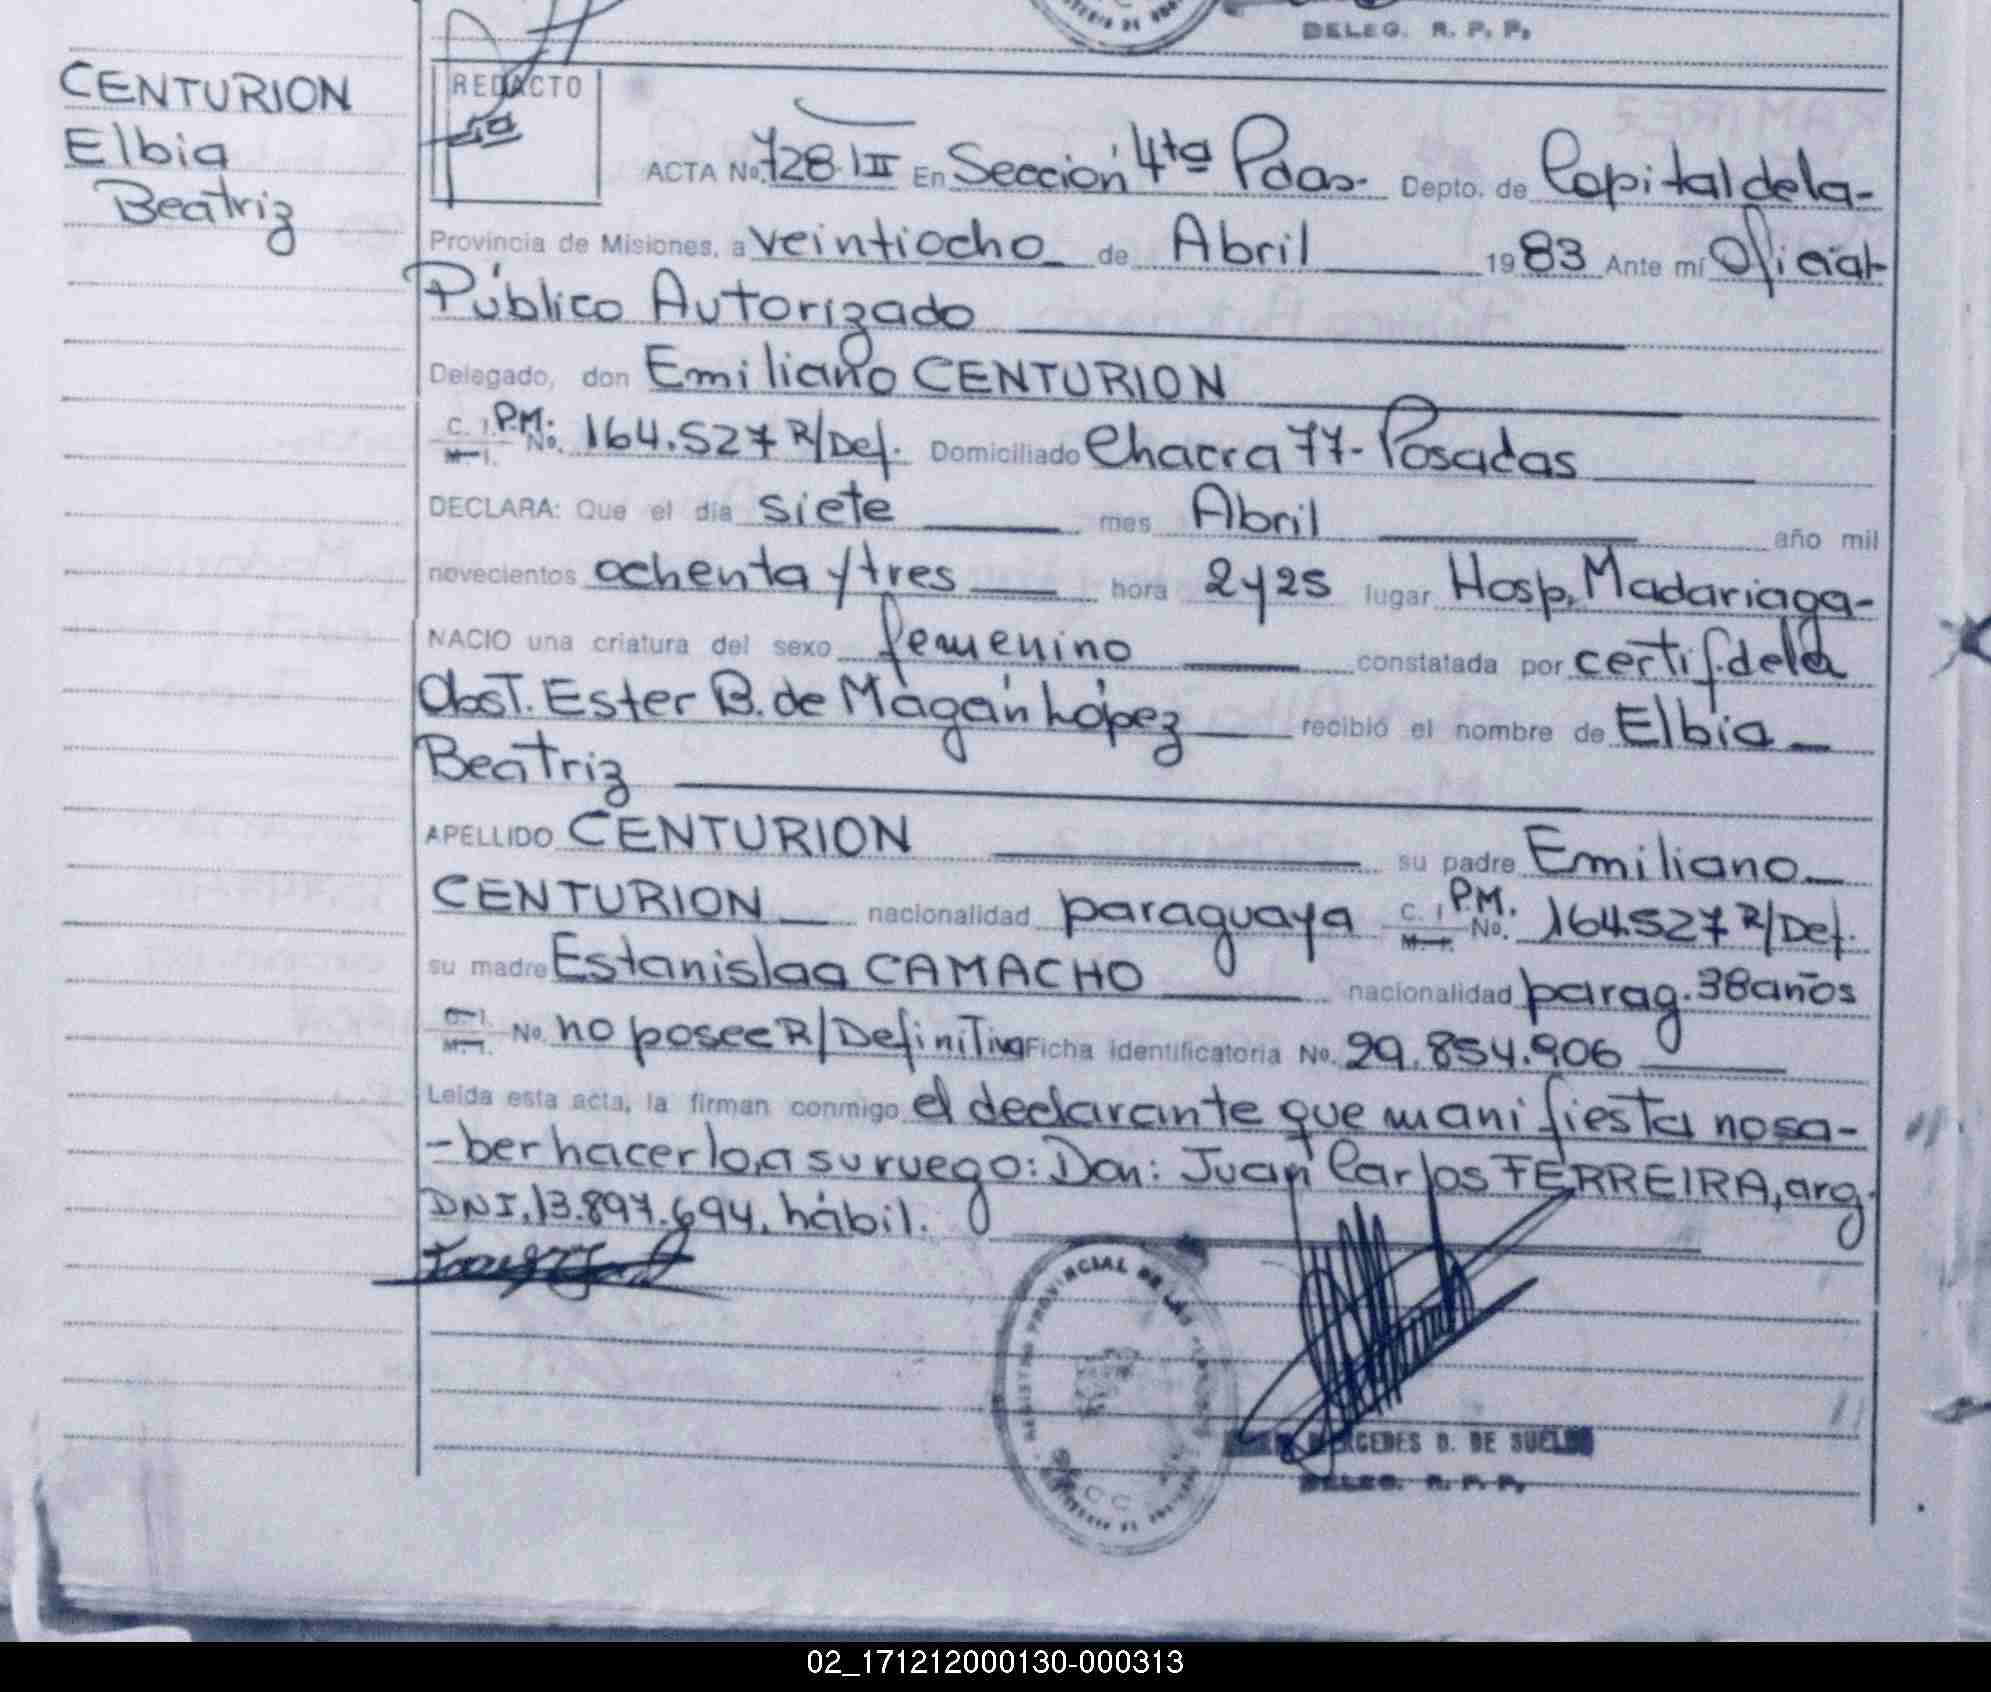 DELEG. R. P. P.
CENTURION
Elbia
Beatriz
REDACTO
ACTA No. 728 III En Sección 4ta Pdas. Depto. de Capital de la-
Provincia de Misiones, a veintiocho de Abril 1983 Ante mí Oficial
Público Autorizado
Delegado, don Emiliano CENTURION
C. I. P.M. No. 164.527 R/Def. Domiciliado Chacra 77- Posadas
M. I.
DECLARA: Que el día siete mes Abril año mil
novecientos ochenta y tres hora 2y25 lugar Hosp. Madariaga-
NACIO una criatura del sexo femenino constatada por certif. de la
Obst. Ester B. de Magán López recibió el nombre de Elbia
Beatriz
APELLIDO CENTURION su padre Emiliano
CENTURION nacionalidad paraguaya C. I. P.M. No. 164.527 R/Def.
M. I.
su madre Estanislaa CAMACHO nacionalidad parag. 38 años
C. I. No. no posee R/Definitiva Ficha identificatoria No. 29.854.906
M. I.
Leida esta acta, la firman conmigo el declarante que manifiesta no sa-
-ber hacerlo, a su ruego: Don: Juan Carlos FERREIRA, arg.
DNI. 13.897.694. hábil.
REGISTRO PROVINCIAL DE LAS PERSONAS
MERCEDES D. DE SUELDO
DELEG. R. P. P.
02_171212000130-000313